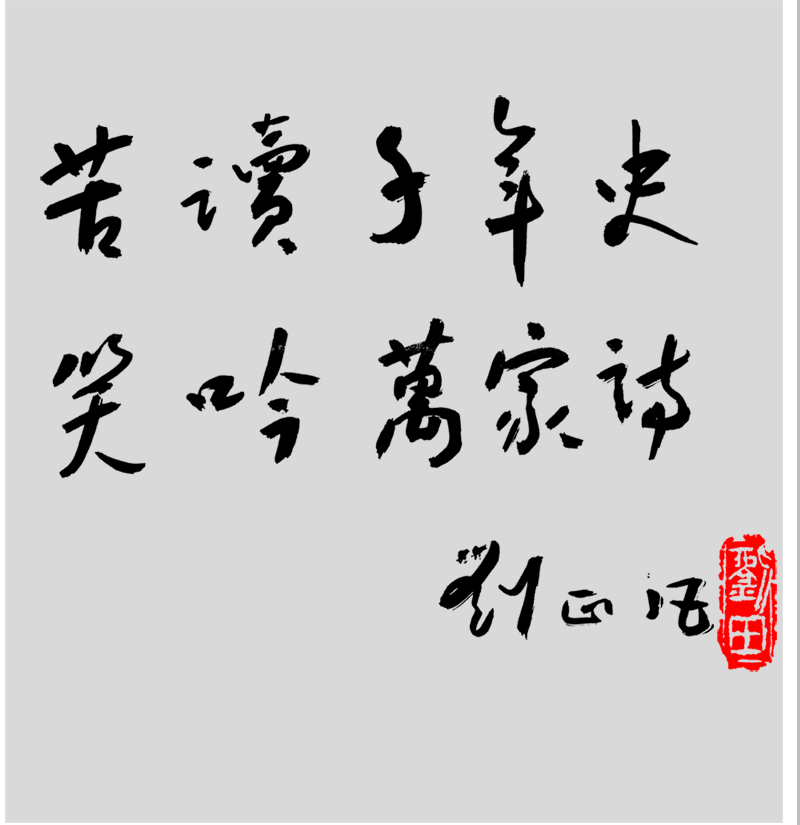 苦讀千年史
笑吟萬家詩
劉正
劉田